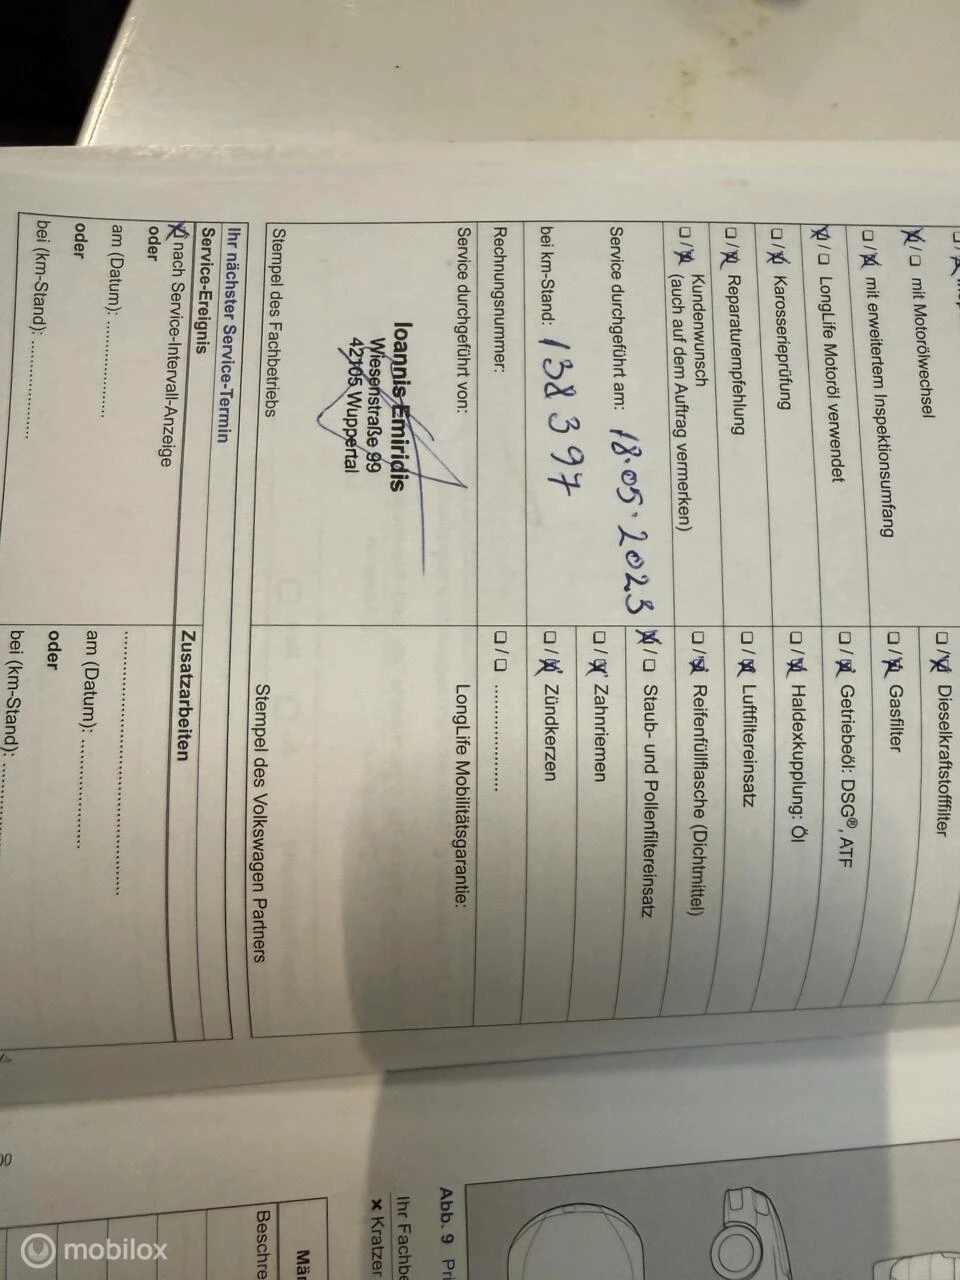 ☒ / ☐ mit Motorölwechsel
☐ / ☒ mit erweitertem Inspektionsumfang
☒ / ☐ LongLife Motoröl verwendet
☐ / ☒ Karosserieprüfung
☐ / ☒ Reparaturempfehlung
☐ / ☒ Kundenwunsch
(auch auf dem Auftrag vermerken)
Service durchgeführt am: 18.05.2023
bei km-Stand: 138 397
Rechnungsnummer:
Service durchgeführt von:
Ioannis Emiridis
Wiesenstraße 99
42105 Wuppertal
Stempel des Fachbetriebs
☐ / ☒ Dieselkraftstofffilter
☐ / ☒ Gasfilter
☐ / ☒ Getriebeöl: DSG®, ATF
☐ / ☒ Haldexkupplung: Öl
☐ / ☒ Luftfiltereinsatz
☐ / ☒ Reifenfüllflasche (Dichtmittel)
☒ / ☐ Staub- und Pollenfiltereinsatz
☐ / ☒ Zahnriemen
☐ / ☒ Zündkerzen
☐ / ☐ ....................
LongLife Mobilitätsgarantie:
Stempel des Volkswagen Partners
Ihr nächster Service-Termin
Service-Ereignis
☒ nach Service-Intervall-Anzeige
oder
am (Datum): ....................
oder
bei (km-Stand): ....................
Zusatzarbeiten
........................................
am (Datum): ....................
oder
bei (km-Stand): ....................
Abb. 9 Pri
Ihr Fachbe
× Kratzer
Män
Beschre
00
mobilox